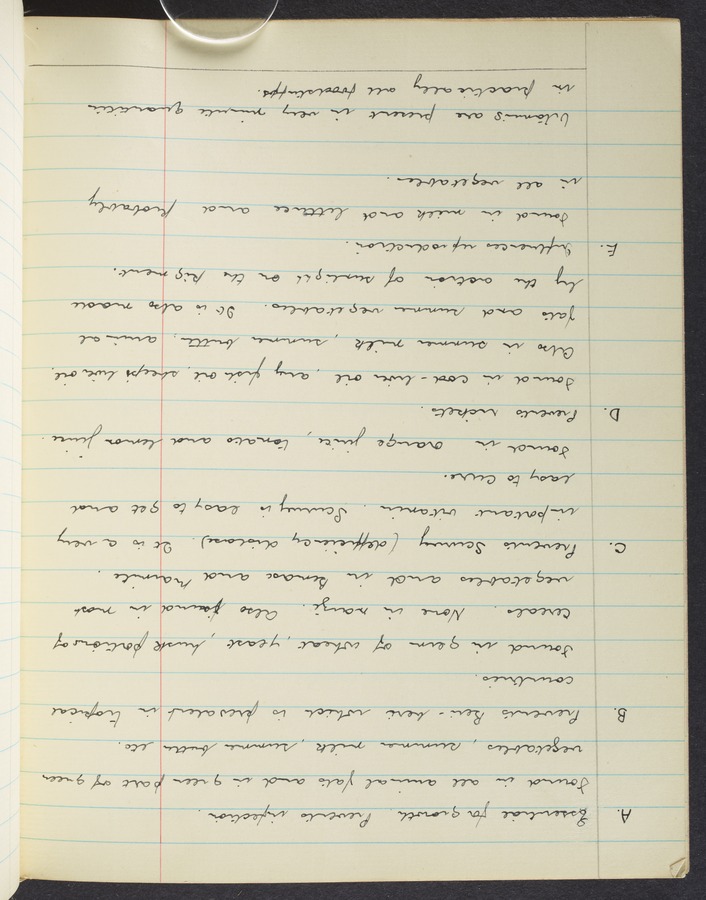 A. Essential for growth. Prevents infection.
Found in all animal fats and in green part of green
vegetables, summer milk, summer butter etc.
B. Prevents Beri-beri which is prevalent in tropical
countries.
Found in germ of wheat, yeast, husk portions of
cereals. None in marge. Also found in most
vegetables and in Bemax and Marmite.
C. Prevents Scurvy (defficiency disease). It is a very
important vitamin. Scurvy is easy to get and
easy to cure.
Found in orange juice, tomato and lemon juice.
D. Prevents rickets.
Found in cod-liver oil, any fish oil, sheep's liver oil.
Also in summer milk, summer butter, animal
fats and summer vegetables. It is also made
by the action of sunlight on the pigment.
E. Influences reproduction.
Found in milk and lettuce and probably
in all vegetables.
Vitamins are present in very minute quantities
in practically all foodstuffs.